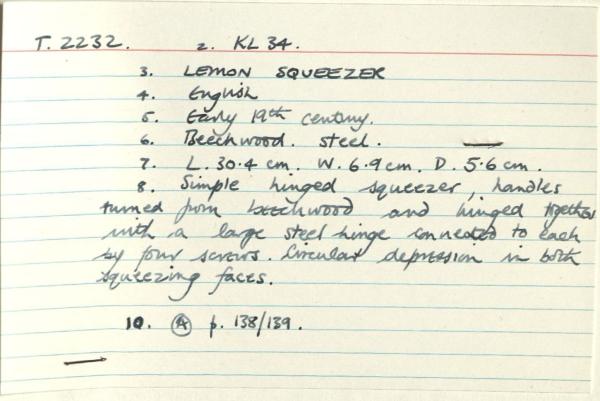 T. 2232. 2. KL 34.
3. LEMON SQUEEZER
4. English
5. Early 19th century.
6. Beechwood. steel.
7. L. 30.4 cm. W. 6.9 cm. D. 5.6 cm.
8. Simple hinged squeezer, handles
turned from beechwood and hinged together
with a large steel hinge connected to each
by four screws. Circular depression in both
squeezing faces.
10. (A) p. 138/139.